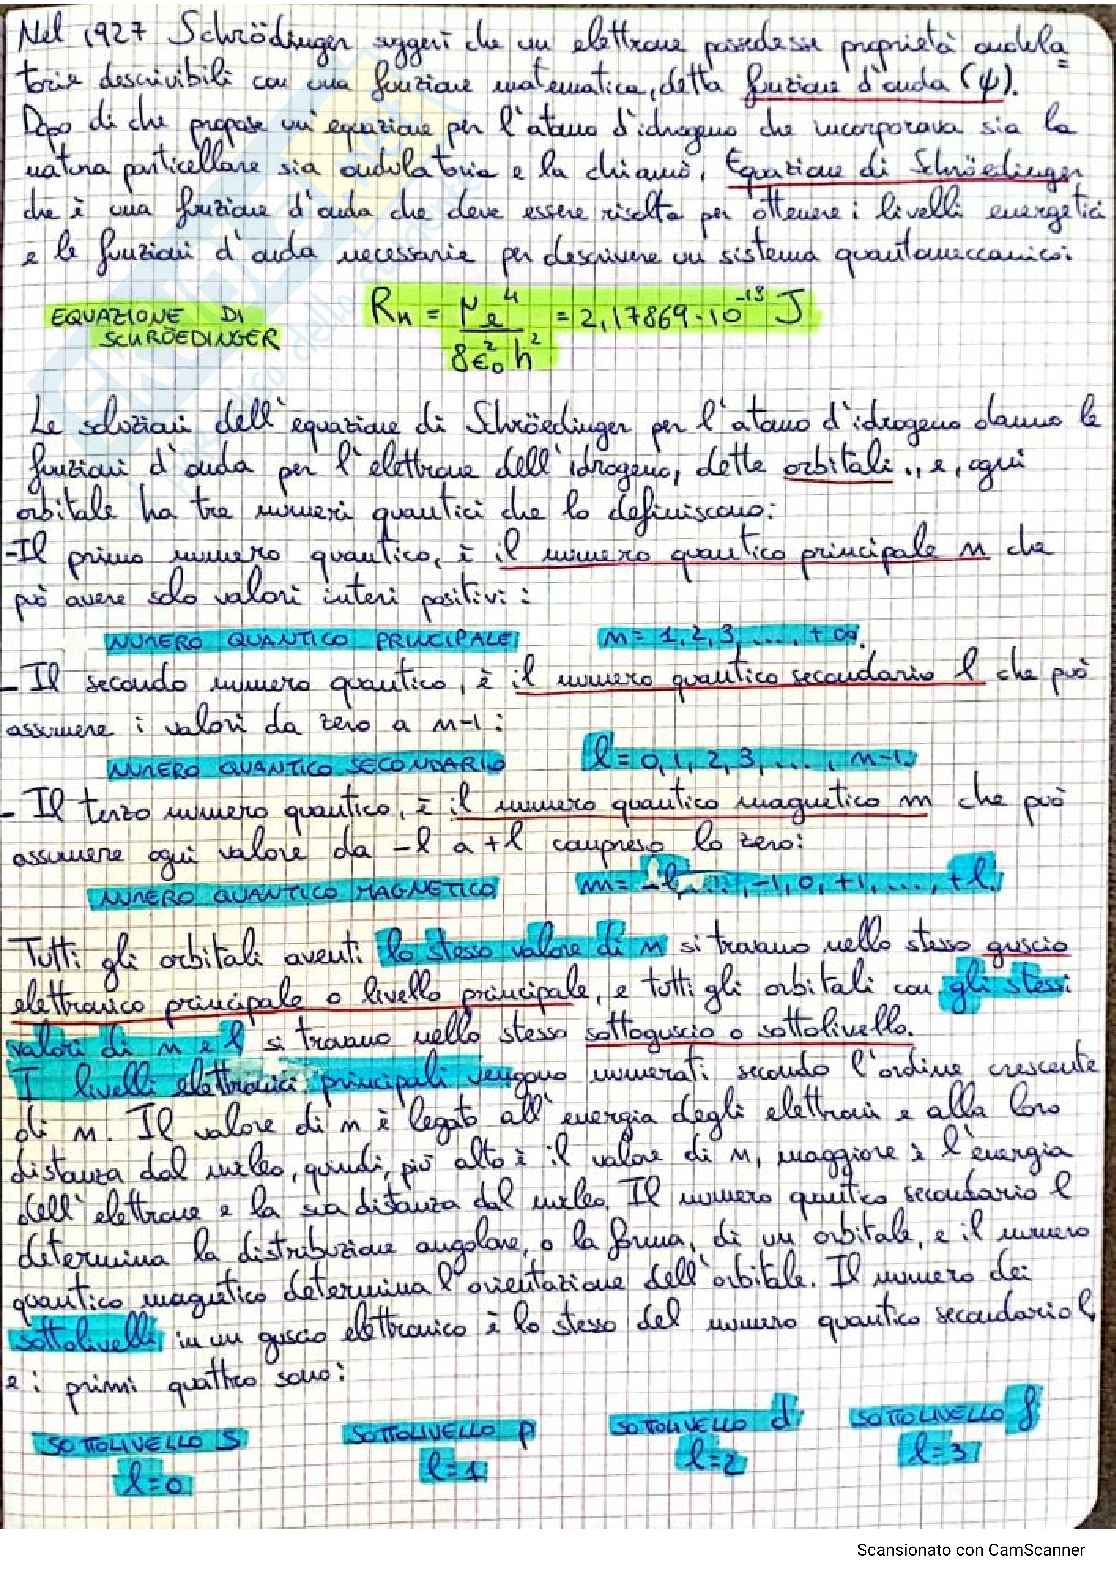 Nel 1927 Schrödinger suggerì che un elettrone possedesse proprietà ondula=
torie descrivibili con una funzione matematica, detta funzione d'onda (ψ).
Dopo di che propose un'equazione per l'atomo d'idrogeno che incorporava sia la
natura particellare sia ondulatoria e la chiamò, Equazione di Schröedinger
che è una funzione d'onda che deve essere risolta per ottenere i livelli energetici
e le funzioni d'onda necessarie per descrivere un sistema quantomeccanico:
EQUAZIONE DI SCHRÖEDINGER R_H = μe⁴ / 8ε₀²h² = 2,17869·10⁻¹⁸ J
Le soluzioni dell'equazione di Schröedinger per l'atomo d'idrogeno danno le
funzioni d'onda per l'elettrone dell'idrogeno, dette orbitali, e, ogni
orbitale ha tre numeri quantici che lo definiscono:
-Il primo numero quantico, è il numero quantico principale n che
può avere solo valori interi positivi:
NUMERO QUANTICO PRINCIPALE n=1,2,3,...,+∞
- Il secondo numero quantico, è il numero quantico secondario l che può
assumere i valori da zero a n-1:
NUMERO QUANTICO SECONDARIO l=0,1,2,3,...,n-1
- Il terzo numero quantico, è il numero quantico magnetico m che può
assumere ogni valore da -l a +l compreso lo zero:
NUMERO QUANTICO MAGNETICO m=-l,...,-1,0,+1,...,+l
Tutti gli orbitali aventi lo stesso valore di n si trovano nello stesso guscio
elettronico principale o livello principale, e tutti gli orbitali con gli stessi
valori di n e l si trovano nello stesso sottoguscio o sottolivello.
I livelli elettronici principali vengono numerati secondo l'ordine crescente
di n. Il valore di n è legato all'energia degli elettroni e alla loro
distanza dal nucleo, quindi, più alto è il valore di n, maggiore è l'energia
dell'elettrone e la sua distanza dal nucleo. Il numero quntico secondario l
determina la distribuzione angolare, o la forma, di un orbitale, e il numero
quantico magnetico determina l'orientazione dell'orbitale. Il numero dei
sottolivelli in un guscio elettronico è lo stesso del numero quantico secondario l,
e i primi quattro sono:
SOTTOLIVELLO s SOTTOLIVELLO p SOTTOLIVELLO d SOTTOLIVELLO f
l=0 l=1 l=2 l=3
Scansionato con CamScanner